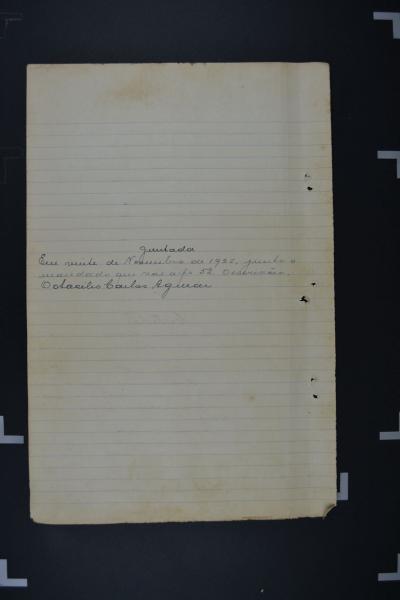 Juntada
Em vinte de Novembro de 1925, junto o
mandado que vae a fs 52. O escrivão,
Octacilio Carlos Aguiar